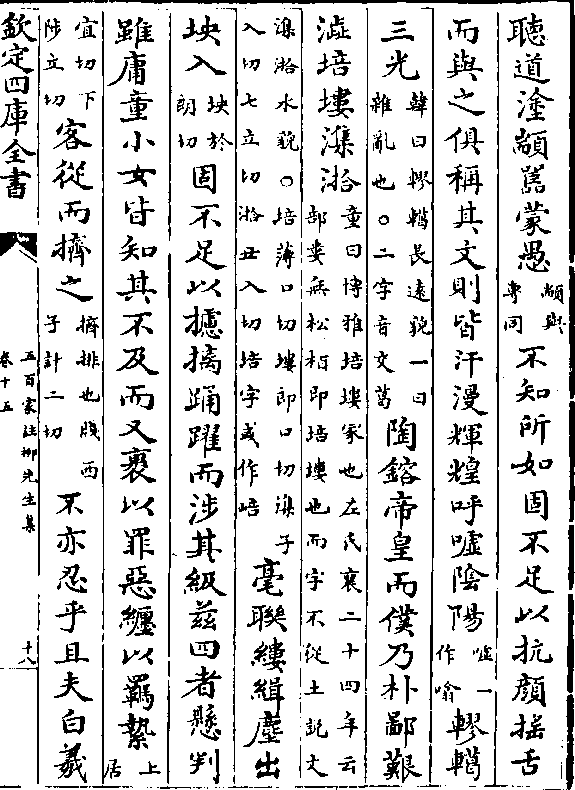 聽道塗顓嚚蒙愚顓與專同不知所如固不足以抗顔搖舌
而與之俱稱其文則皆汗漫輝煌呼噓陰陽噓一作噏轇轕
三光韓曰轇轕長逺貌一曰雜亂也○二字音交葛陶鎔帝皇而僕乃朴鄙艱
澁培塿潗湁童曰博雅培塿冢也左氏襄二十四年云部婁無松栢即培塿也而字不從土說文
潗湁水貌○培薄口切塿即口切潗子入切七立切湁丑入切培字或作峈毫聯縷緝塵出
坱入坱於朗切固不足以攄摛踊躍而涉其級兹四者懸判
雖庸童小女皆知其不及而又裹以罪惡纏以羈縶上居
宜切下陟立切客從而擠之擠排也牋西子計二切不亦忍乎且夫白羲
欽定四庫全書
五百家注柳先生集
卷十五
十八